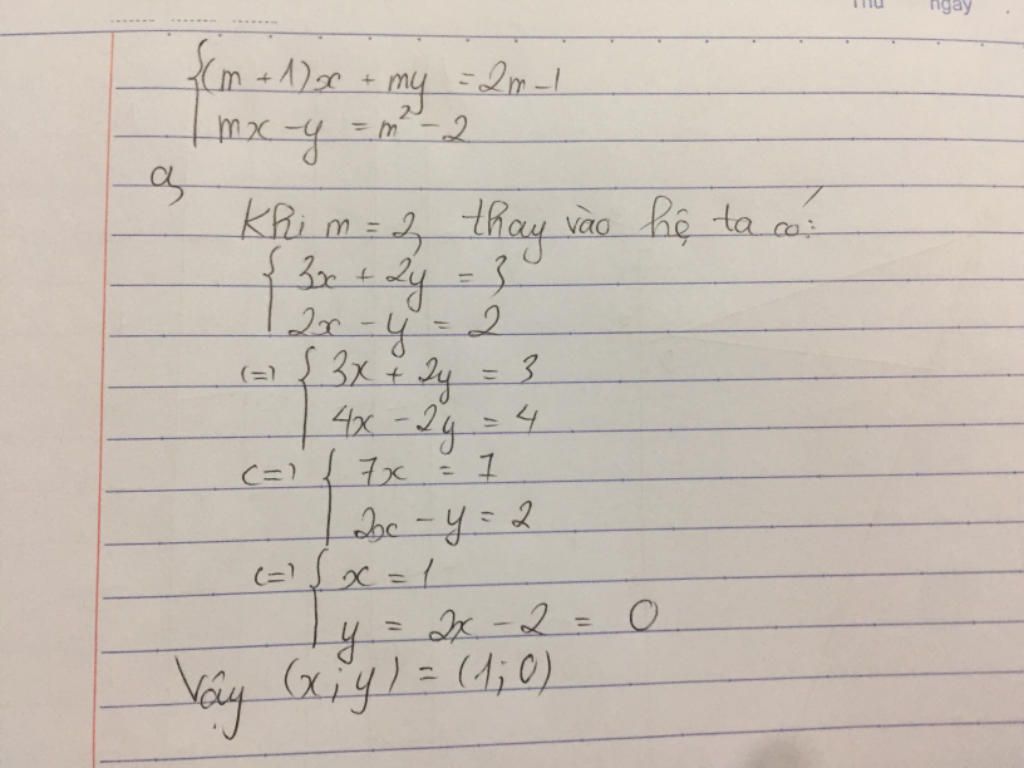 Thứ ngày .
{(m + 1)x + my = 2m - 1
mx - y = m² - 2
a,
Khi m = 2, thay vào hệ ta có:
{ 3x + 2y = 3
2x - y = 2
(=) { 3x + 2y = 3
4x - 2y = 4
(=) { 7x = 7
2x - y = 2
(=) { x = 1
y = 2x - 2 = 0
Vậy (x; y) = (1; 0)